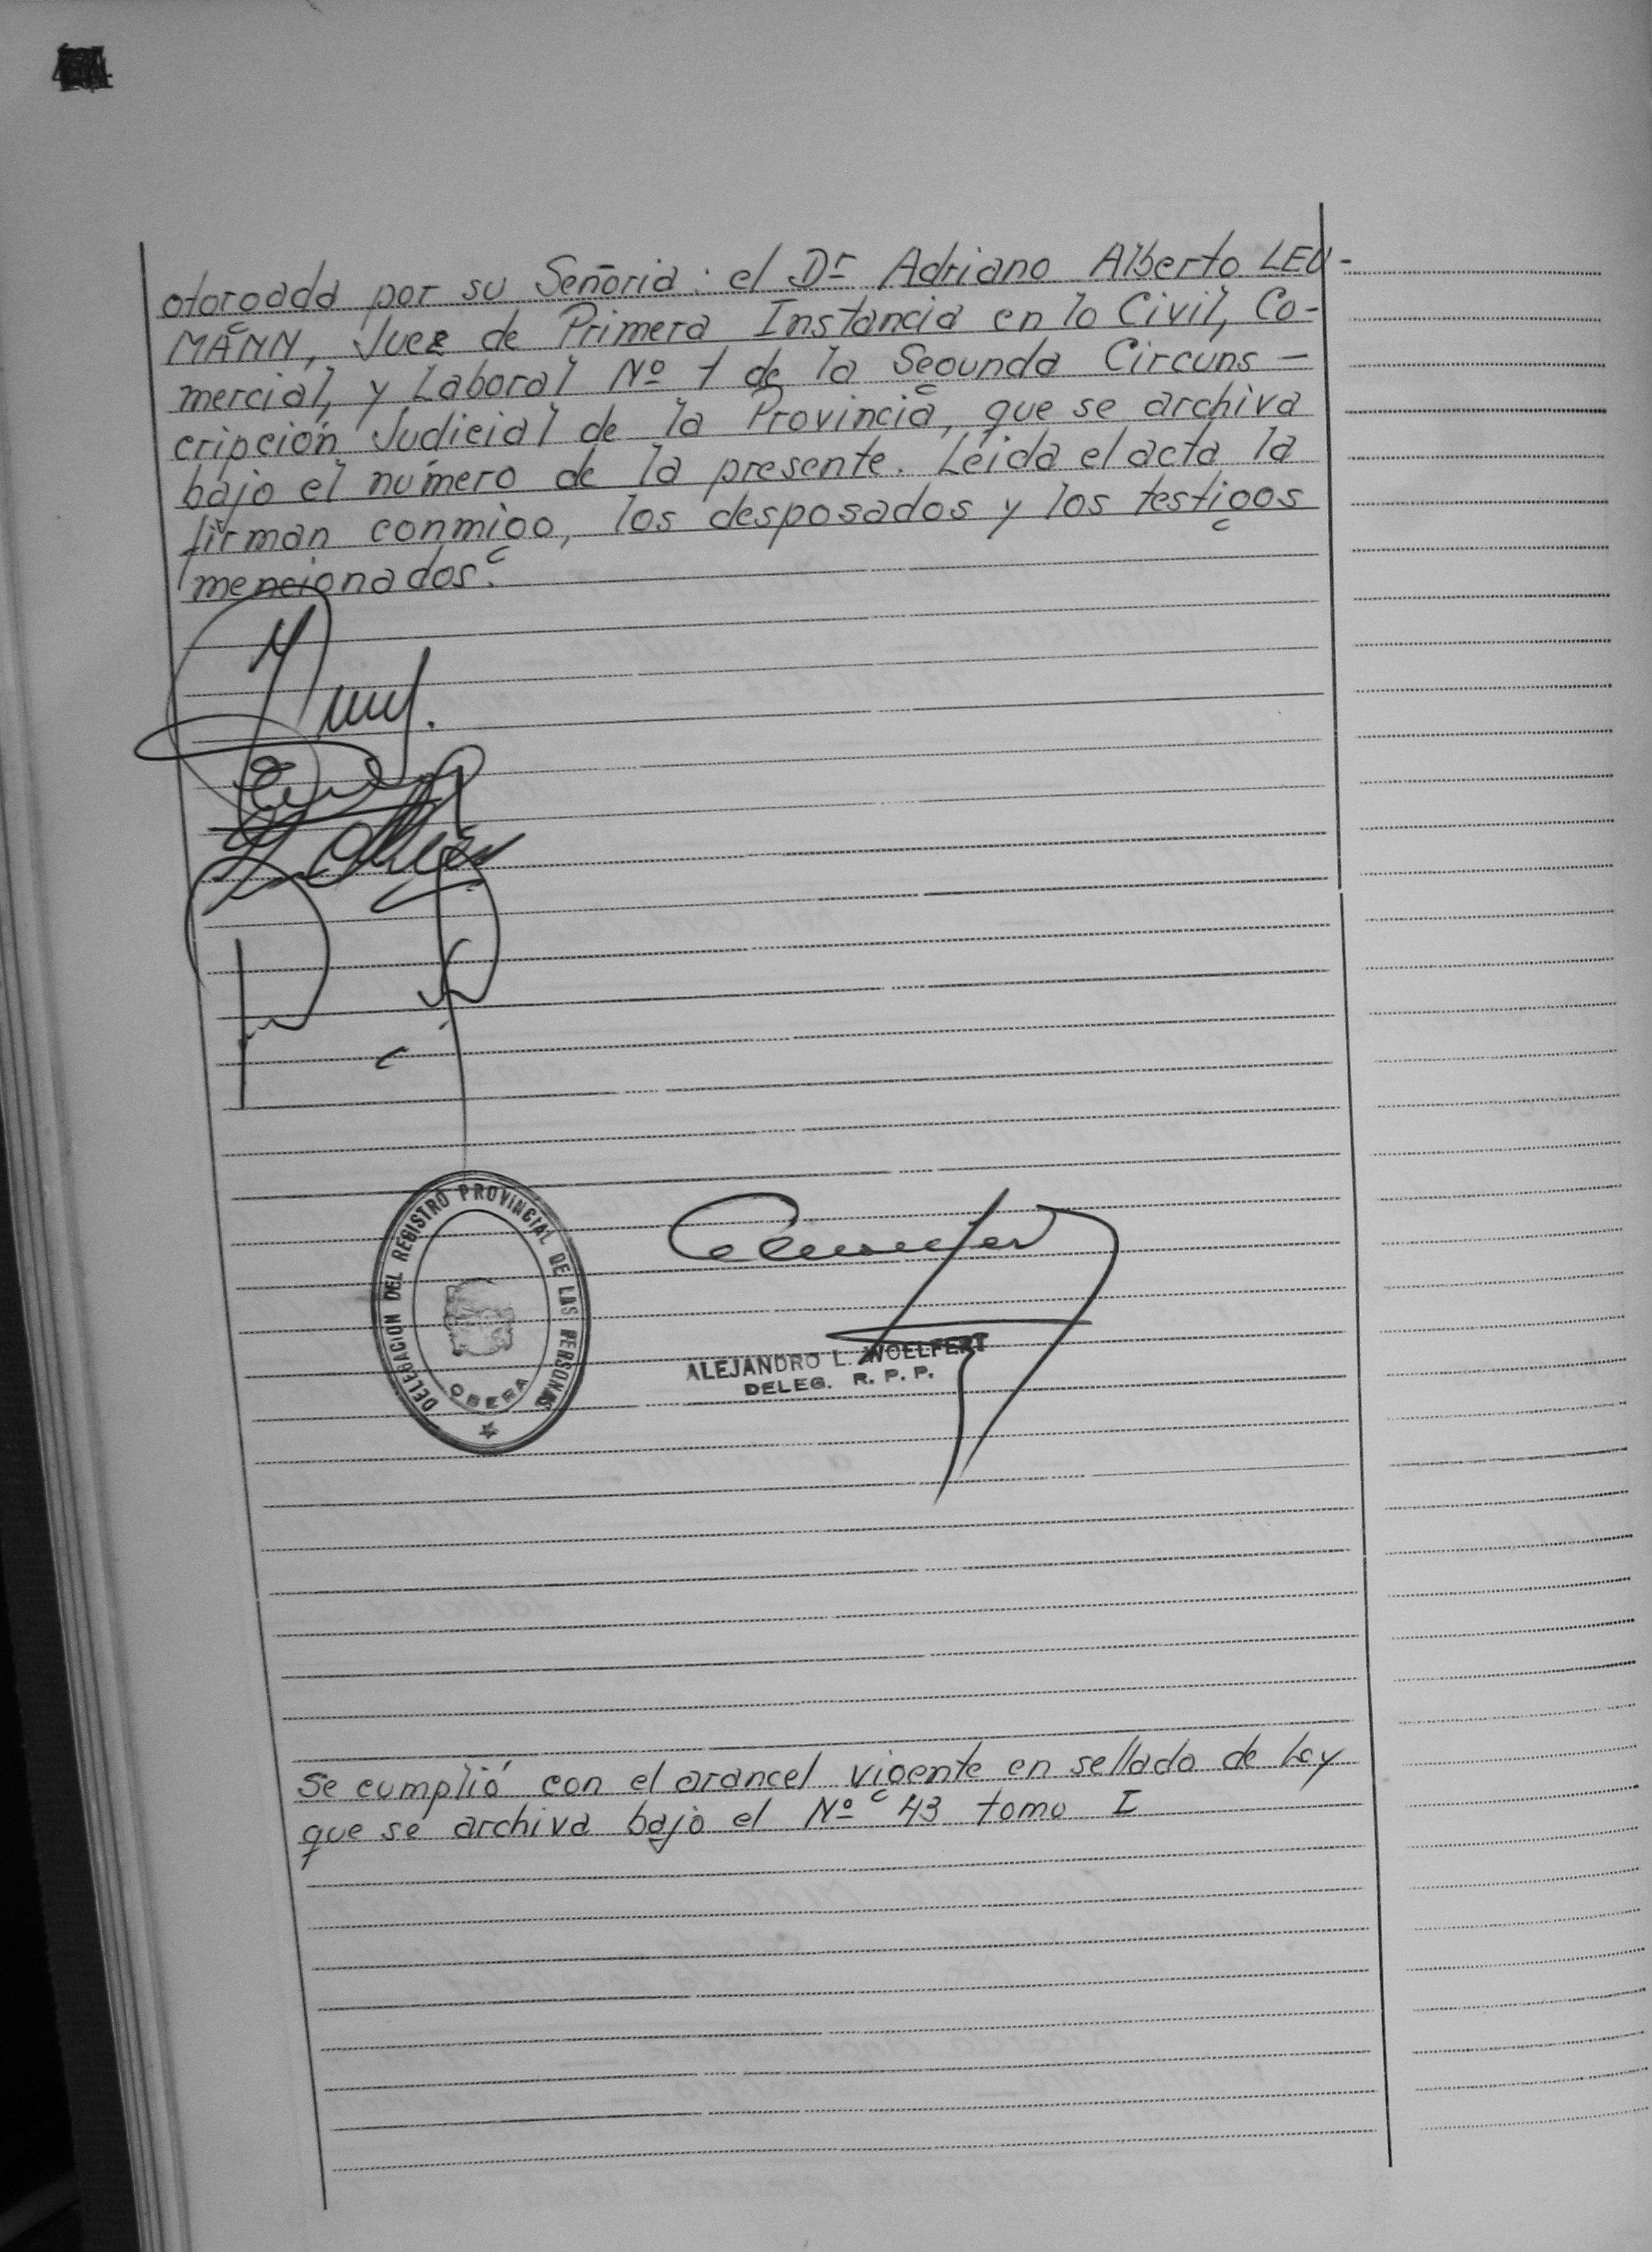 otorgada por su Señoria: el Dr Adriano Alberto LEU-
MANN, Juez de Primera Instancia en lo Civil, Co-
mercial, y Laboral Nº 1 de la Segunda Circuns-
cripción Judicial de la Provincia, que se archiva
bajo el número de la presente. Leida el acta, la
firman conmigo, los desposados y los testigos
mencionados.
DELEGACION DEL REGISTRO PROVINCIAL DE LAS PERSONAS
OBERA
ALEJANDRO L. WOELFERT
DELEG. R. P. P.
Se cumplió con el arancel vigente en sellado de Ley
que se archiva bajo el Nº 43 tomo I